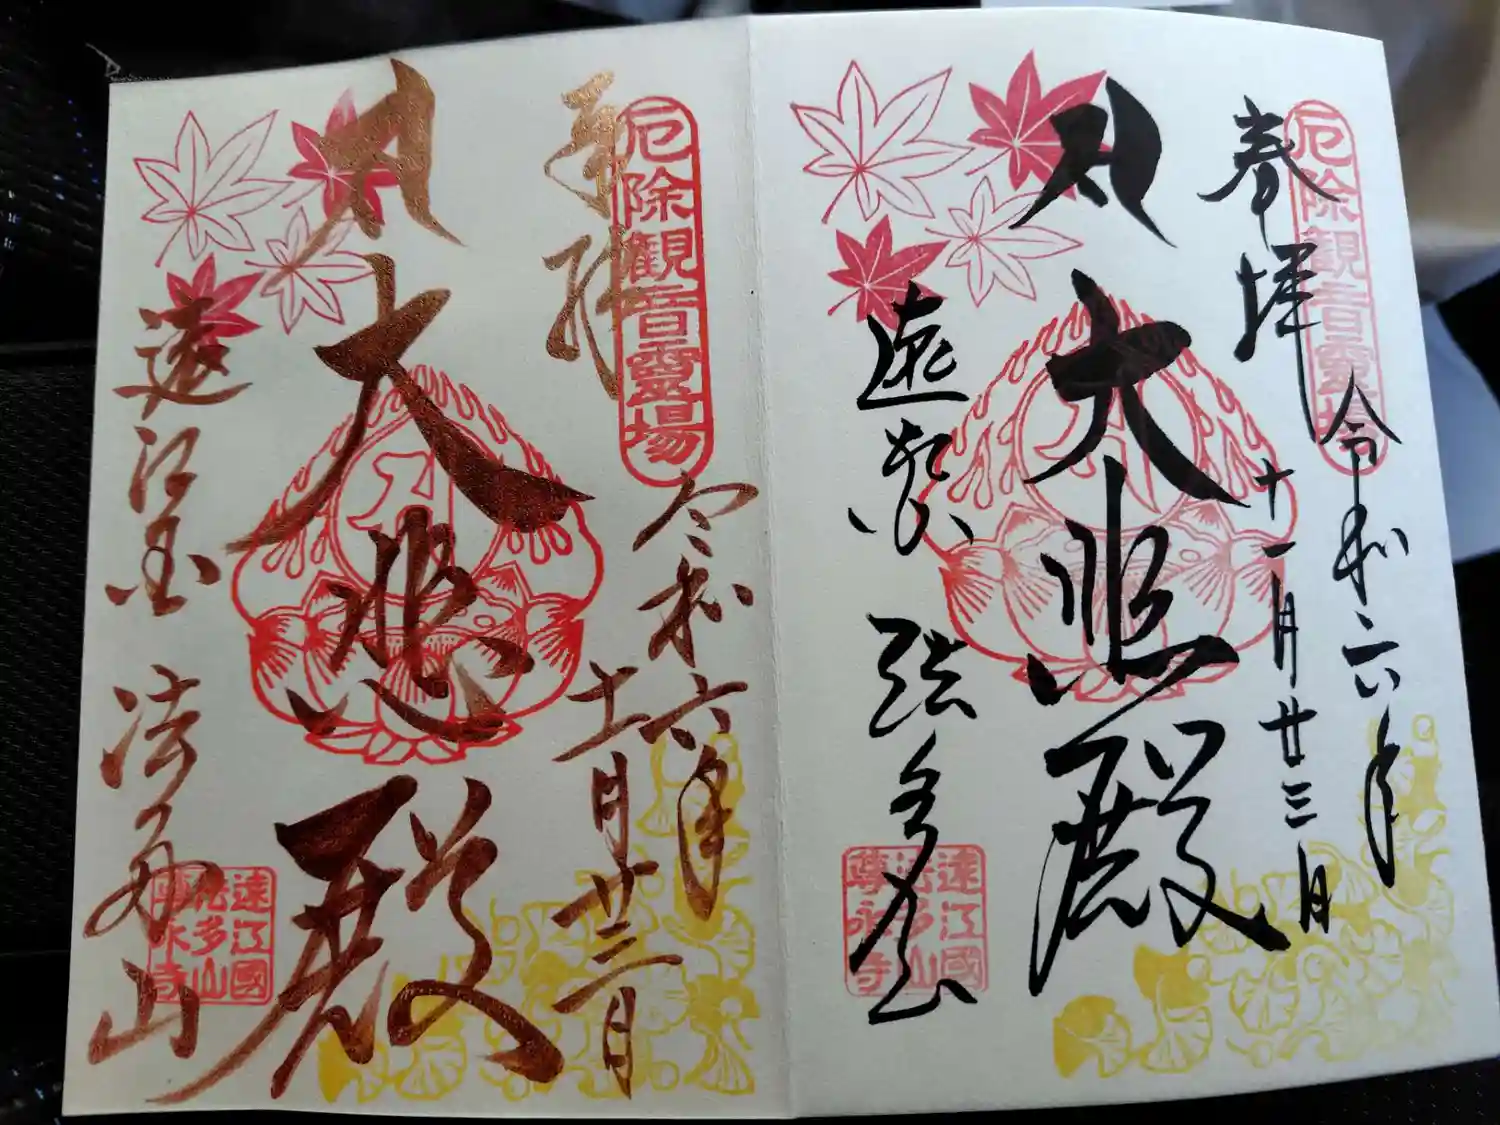 奉拝
厄除観音霊場
令和六年
十一月廿三日
大悲殿
遠江国
法多山
遠江國
法多山
尊永寺
奉拝
厄除観音霊場
令和六年
十一月廿三日
大悲殿
法多山
遠江國
法多山
尊永寺